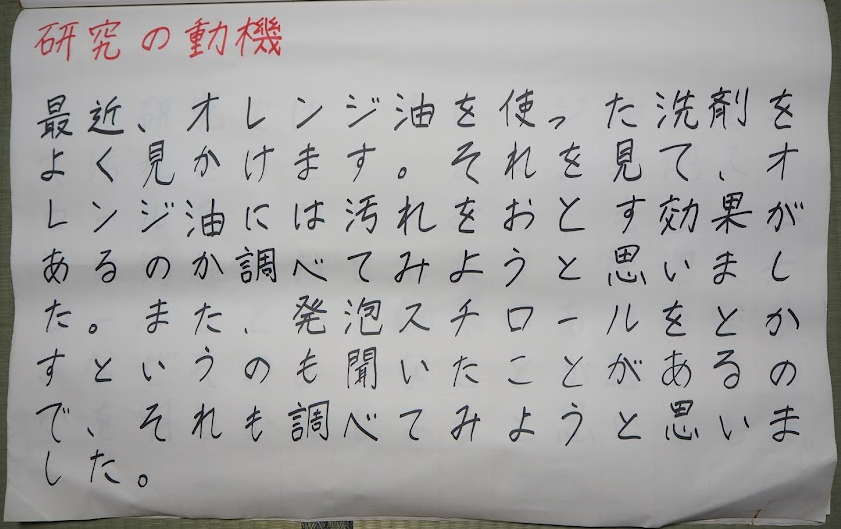 研究の動機
最近、オレンジ油を使った洗剤を
よく見かけます。それを見て、オ
レンジ油には汚れをおとす効果が
あるのか調べてみようと思いまし
た。また、発泡スチロールをとか
すというのも聞いたことがあるの
で、それも調べてみようと思いま
した。